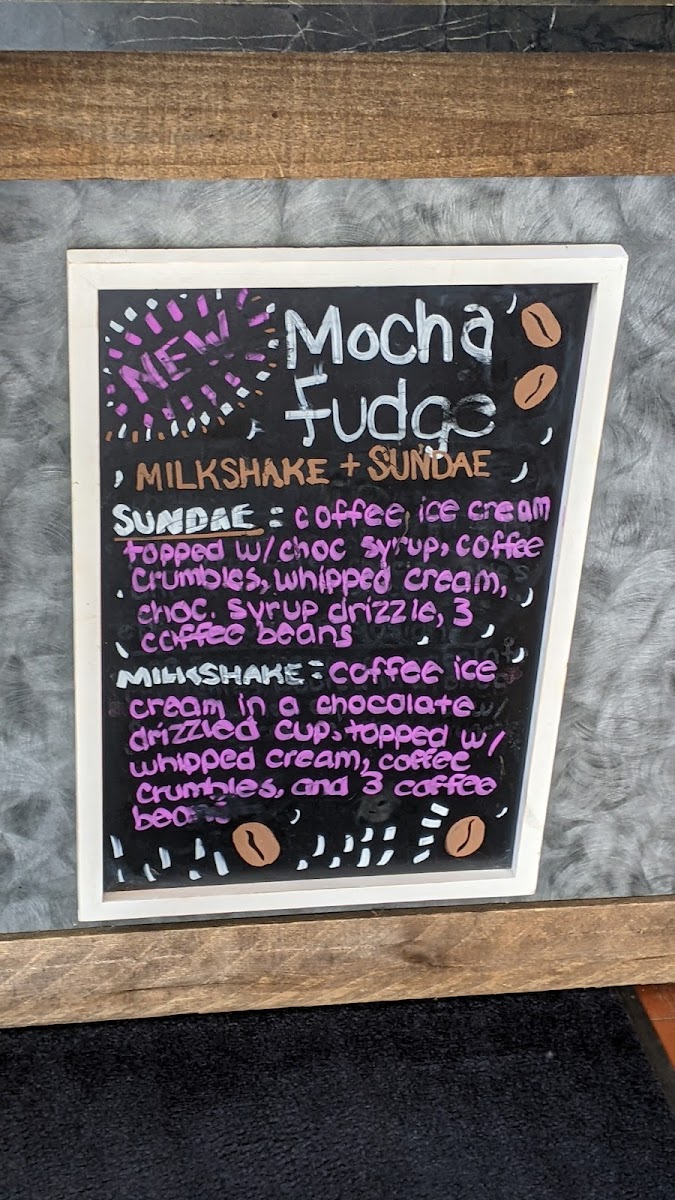 NEW
Mocha
Fudge
MILKSHAKE + SUNDAE
SUNDAE : coffee ice cream
topped w/ choc syrup, coffee
crumbles, whipped cream,
choc. syrup drizzle, 3
coffee beans
MILKSHAKE : coffee ice
cream in a chocolate
drizzled cup, topped w/
whipped cream, coffee
crumbles, and 3 coffee
beans